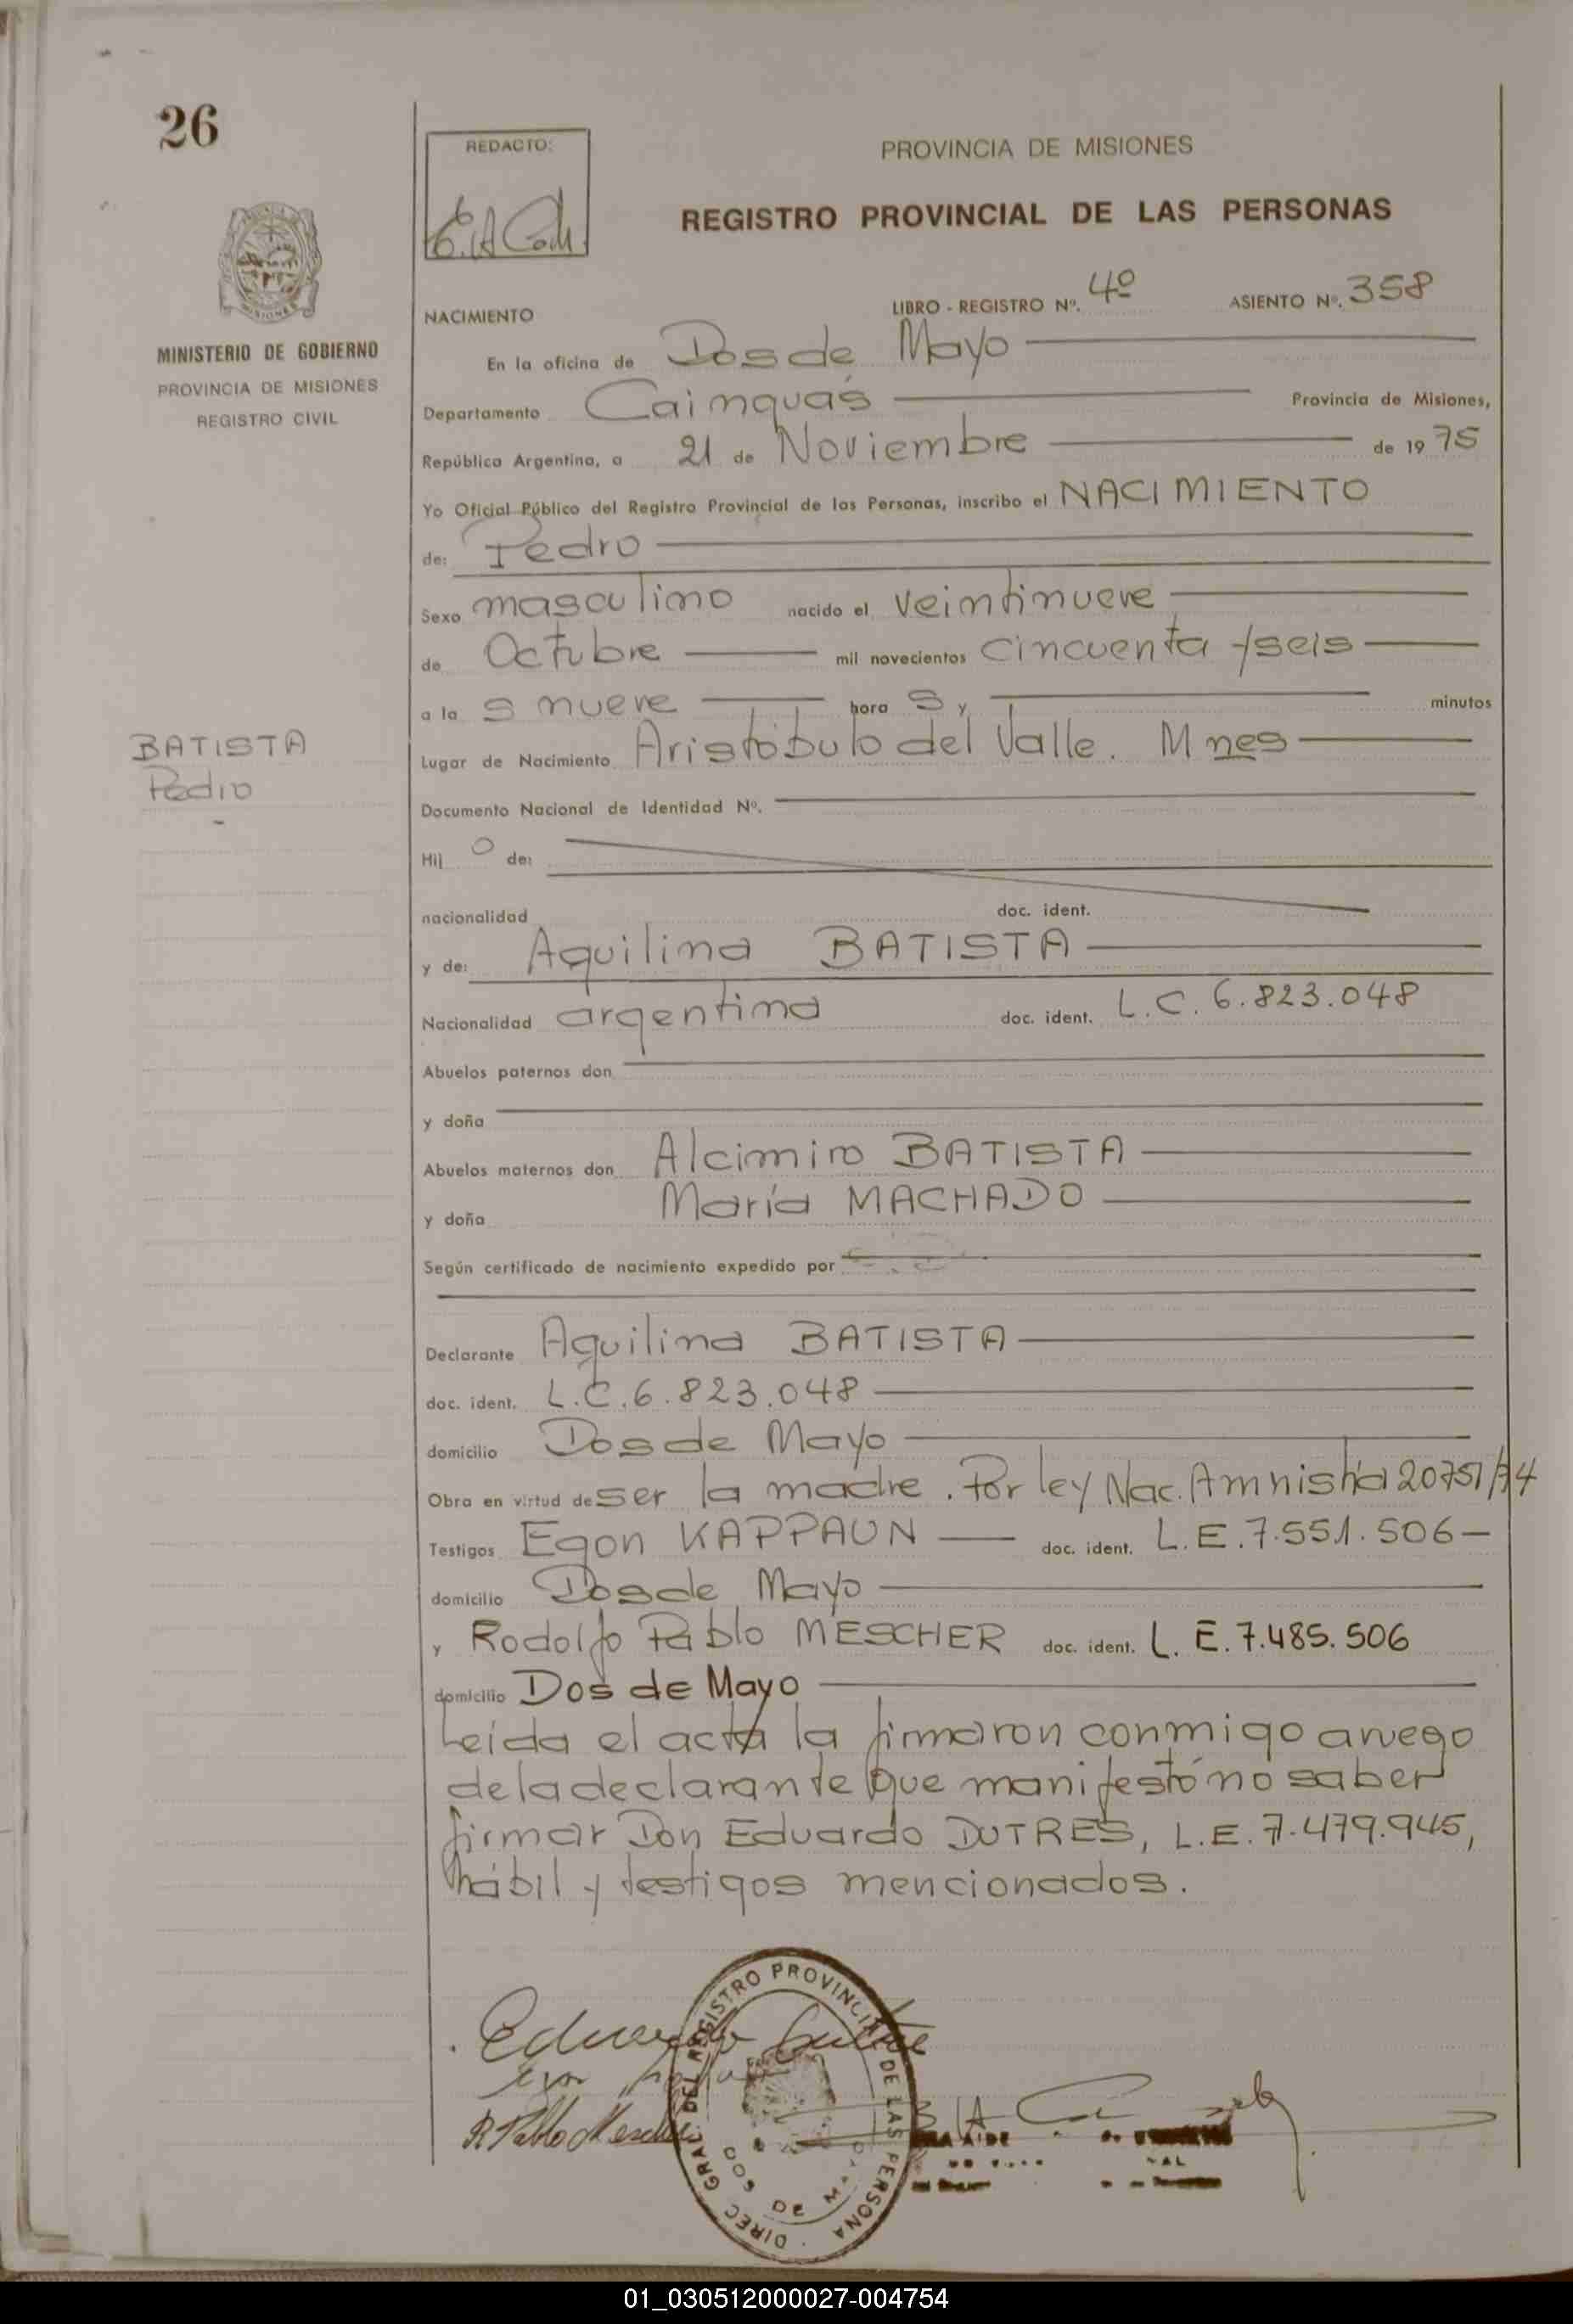 26
REDACTO:
PROVINCIA DE MISIONES
REGISTRO PROVINCIAL DE LAS PERSONAS
MINISTERIO DE GOBIERNO
PROVINCIA DE MISIONES
REGISTRO CIVIL
NACIMIENTO LIBRO - REGISTRO Nº. 4º ASIENTO Nº. 358
En la oficina de Dos de Mayo
Departamento Cainguás Provincia de Misiones,
República Argentina, a 21 de Noviembre de 19 75
Yo Oficial Público del Registro Provincial de las Personas, inscribo el NACIMIENTO
de: Pedro
Sexo masculino nacido el veintinueve
de Octubre mil novecientos cincuenta y seis
a la s nueve hora s y minutos
BATISTA
Pedro
Lugar de Nacimiento Aristóbulo del Valle. Mnes
Documento Nacional de Identidad Nº.
Hij o de:
nacionalidad doc. ident.
y de: Aquilina BATISTA
Nacionalidad argentina doc. ident. L.C. 6.823.048
Abuelos paternos don
y doña
Abuelos maternos don Alcimiro BATISTA
y doña María MACHADO
Según certificado de nacimiento expedido por
Declarante Aquilina BATISTA
doc. ident. L.C. 6.823.048
domicilio Dos de Mayo
Obra en virtud de ser la madre. Por ley Nac. Amnistía 20751/74
Testigos Egon KAPPAUN doc. ident. L.E. 7.551.506
domicilio Dos de Mayo
y Rodolfo Pablo MESCHER doc. ident. L.E. 7.485.506
domicilio Dos de Mayo
Leída el acta la firmaron conmigo a ruego
de la declarante que manifestó no saber
firmar Don Eduardo DUTRES, L.E. 7.479.945,
hábil y testigos mencionados.
Eduardo
R Pablo Mescher
DIREC GRAL. DEL REGISTRO PROVINCIAL DE LAS PERSONA
DOS DE MAYO
01_030512000027-004754